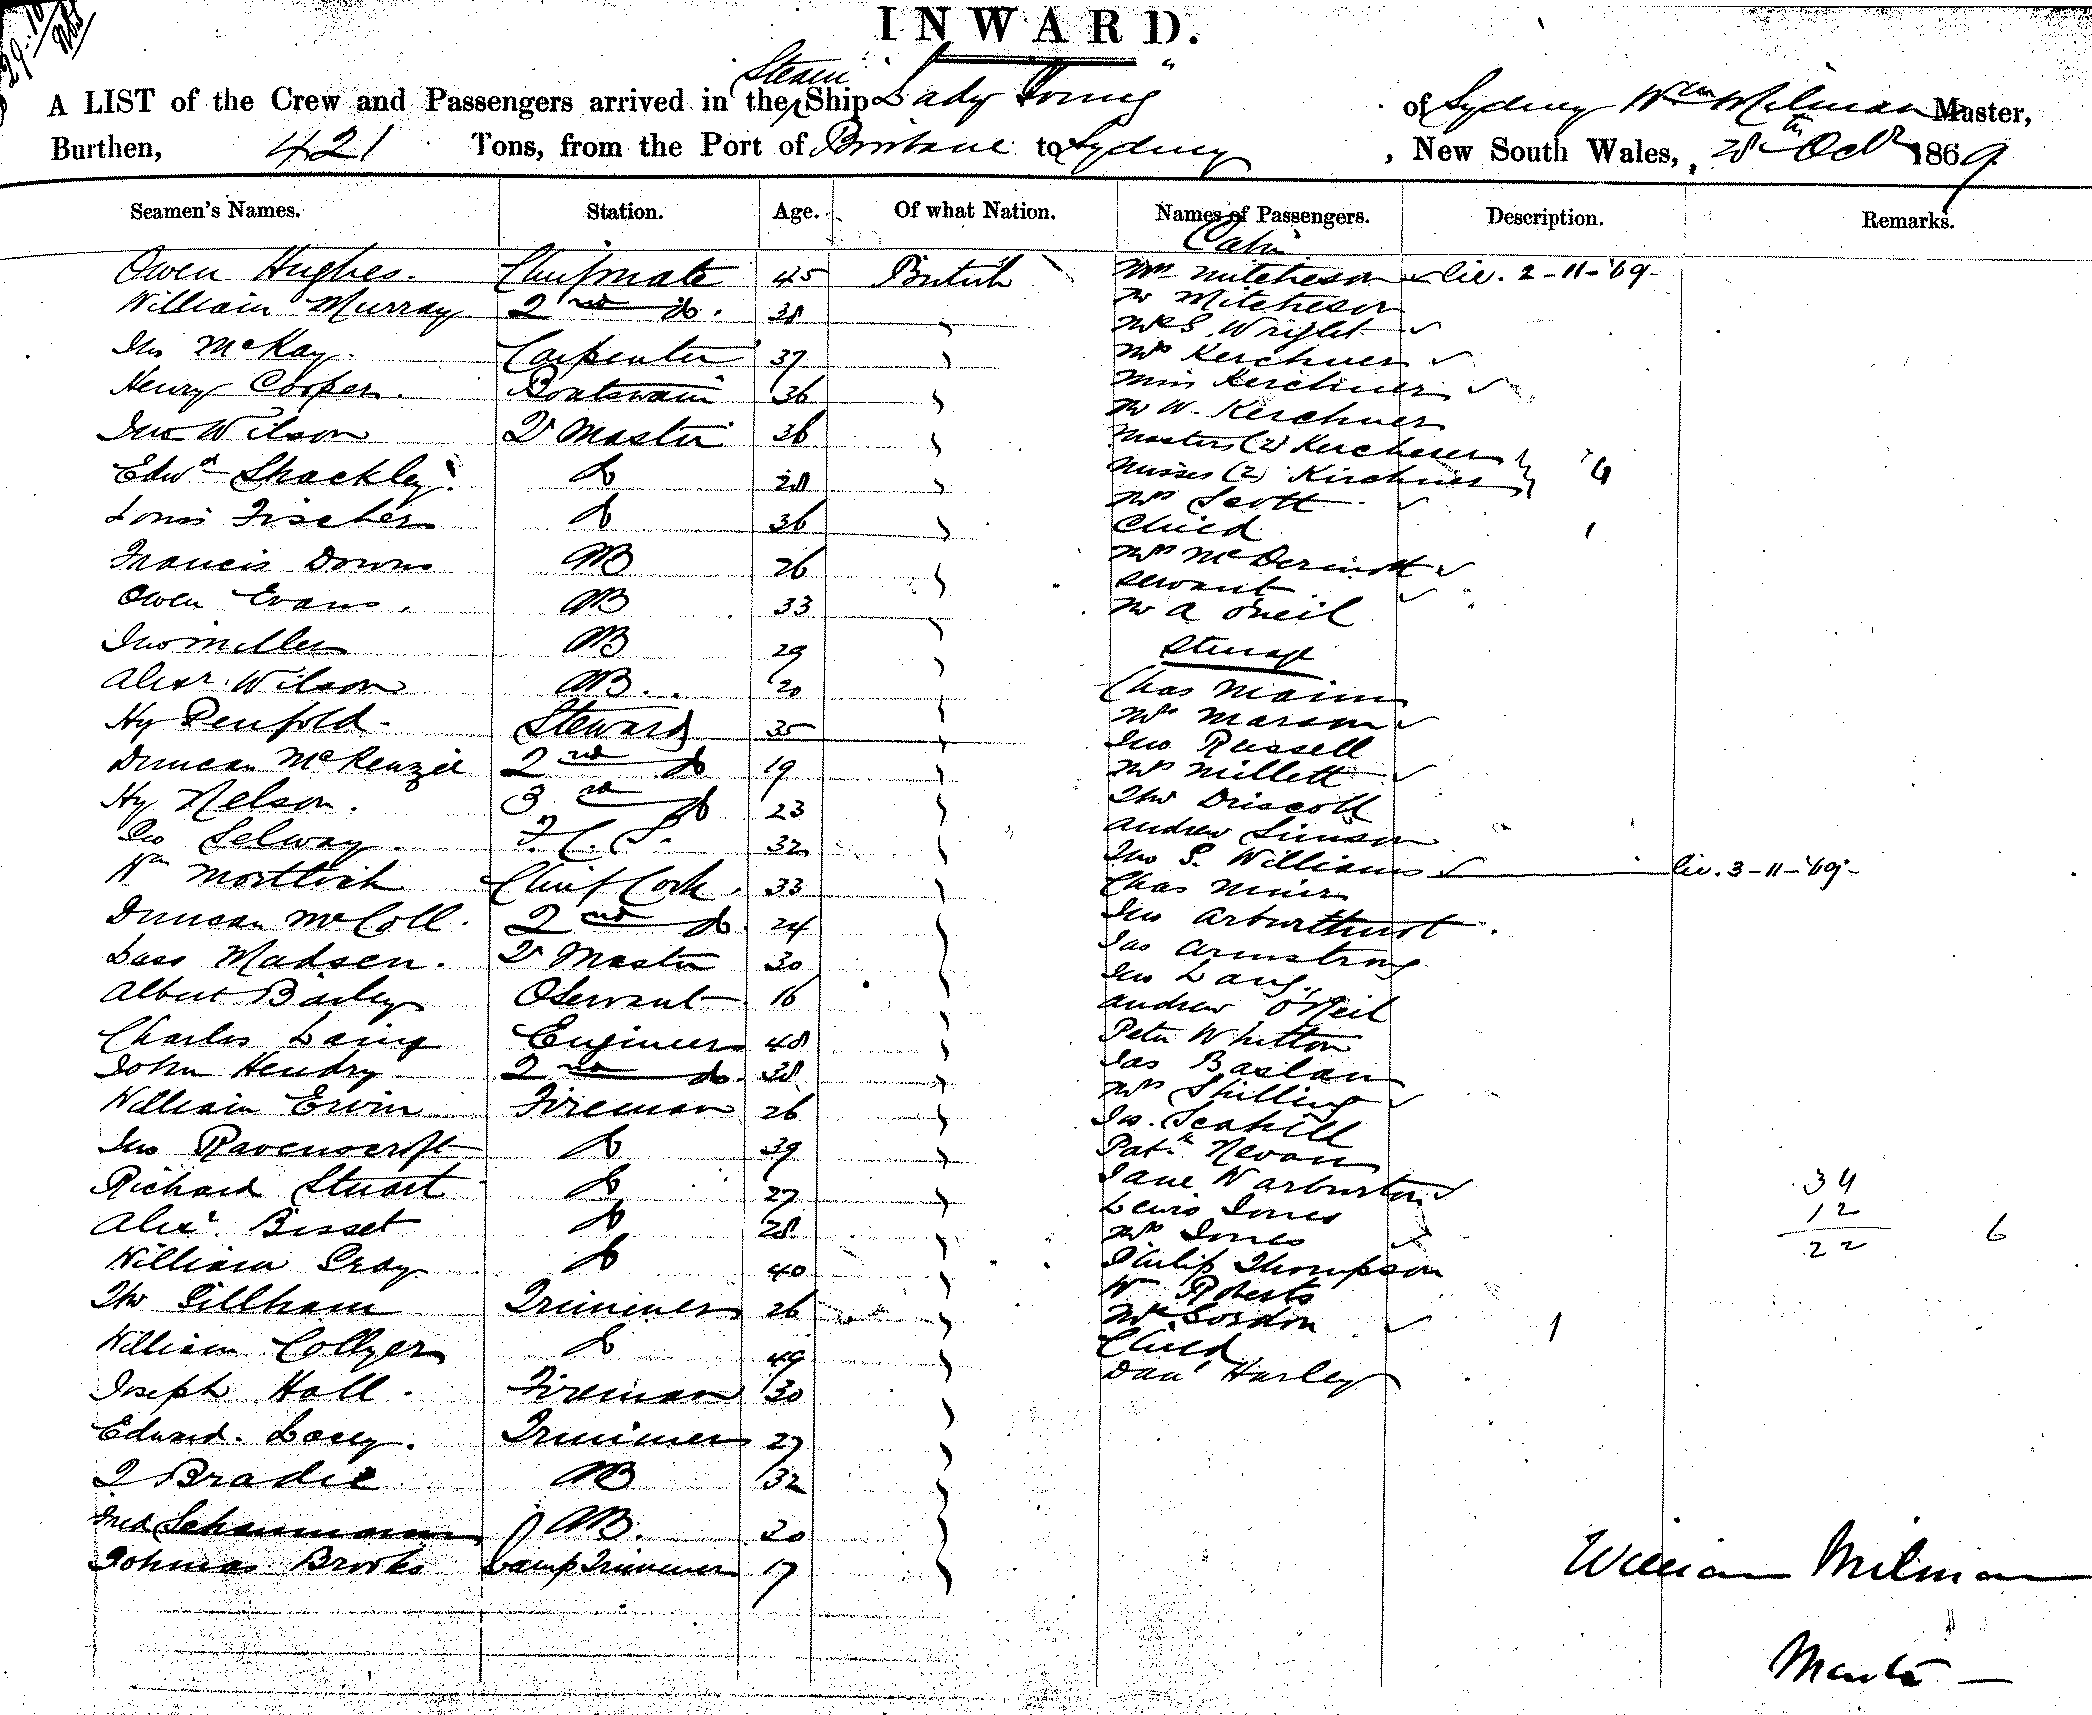 29-10
INWARD.
A LIST of the Crew and Passengers arrived in the Steam Ship "Lady Young" of Sydney Wm Milman Master,
Burthen, 421 Tons, from the Port of Brisbane to Sydney, New South Wales, 28th Octr 1869
Seamen's Names. Station. Age. Of what Nation. Names of Passengers. Description. Remarks.
Cabin
Owen Hughes. Chief mate 45 British
William Murray 2nd do. 38
Jno McKay. Carpenter 37
Henry Cooper. Boatswain 36
Jno Wilson Qr Master 36
Edwd Shackley. do 28
Louis Fischer do 36
Francis Downs AB 26
Owen Evans. AB 33
Jno Miller AB 29
Alexr. Wilson AB.. 20
Hy Penfold. Steward 35
Duncan McKenzie 2nd do 19
Hy Nelson. 3rd do 23
Geo Selway. F.C.S. 32
Wm Mortlock Chief Cook. 33
Duncan McColl. 2nd do. 24
Lass Madsen. Qr Master 30
Albert Bailey OServant 16
Charles Laing Engineer 48
John Hendry 2nd do. 38
William Ervin Fireman 26
Jno Ravenscroft do 39
Richard Stuart do 27
Alexr. Bisset do 28
William Gray do 40
Tho Gillham Trimmer 26
William Collyer do 49
Joseph Hall. Fireman 30
Edward. Lacey. Trimmer 27
J Bradie AB 32
Fred Schaumann AB. 20
Thomas Brooks Lamp Trimmer 17
Mrs Mitcheson liv. 2-11-'69-
Mr Mitcheson
Mrs S. Wright
Mrs Kerchner
Miss Kerchner
Mr W. Kerchner
Masters (2) Kercherer
Misses (2) Kirchner 4
Mrs Scott
Child 1
Mrs McDermott
Servant
Mr A O'Neil
Steerage
Chas Maim
Mrs Marson
Jno Russell
Mrs Millett
Tho Driscoll
Andrew Simson
Jno S. Williams liv. 3-11-'69-
Chas Miner
Jno Arburthnot.
Jas Armstrong
Jno Lang.
Andrew O'Neil
Peter Whitton
Jas Baslam
Mrs Shilling
Js. Scahill
Patk Nevan
Jane Warburton
Lewis Jones
Mrs Jones
Philip Thompson
W Roberts
Mrs Gordon 1
Child
Danl Harley
34
12
22 6
William Milman
Master